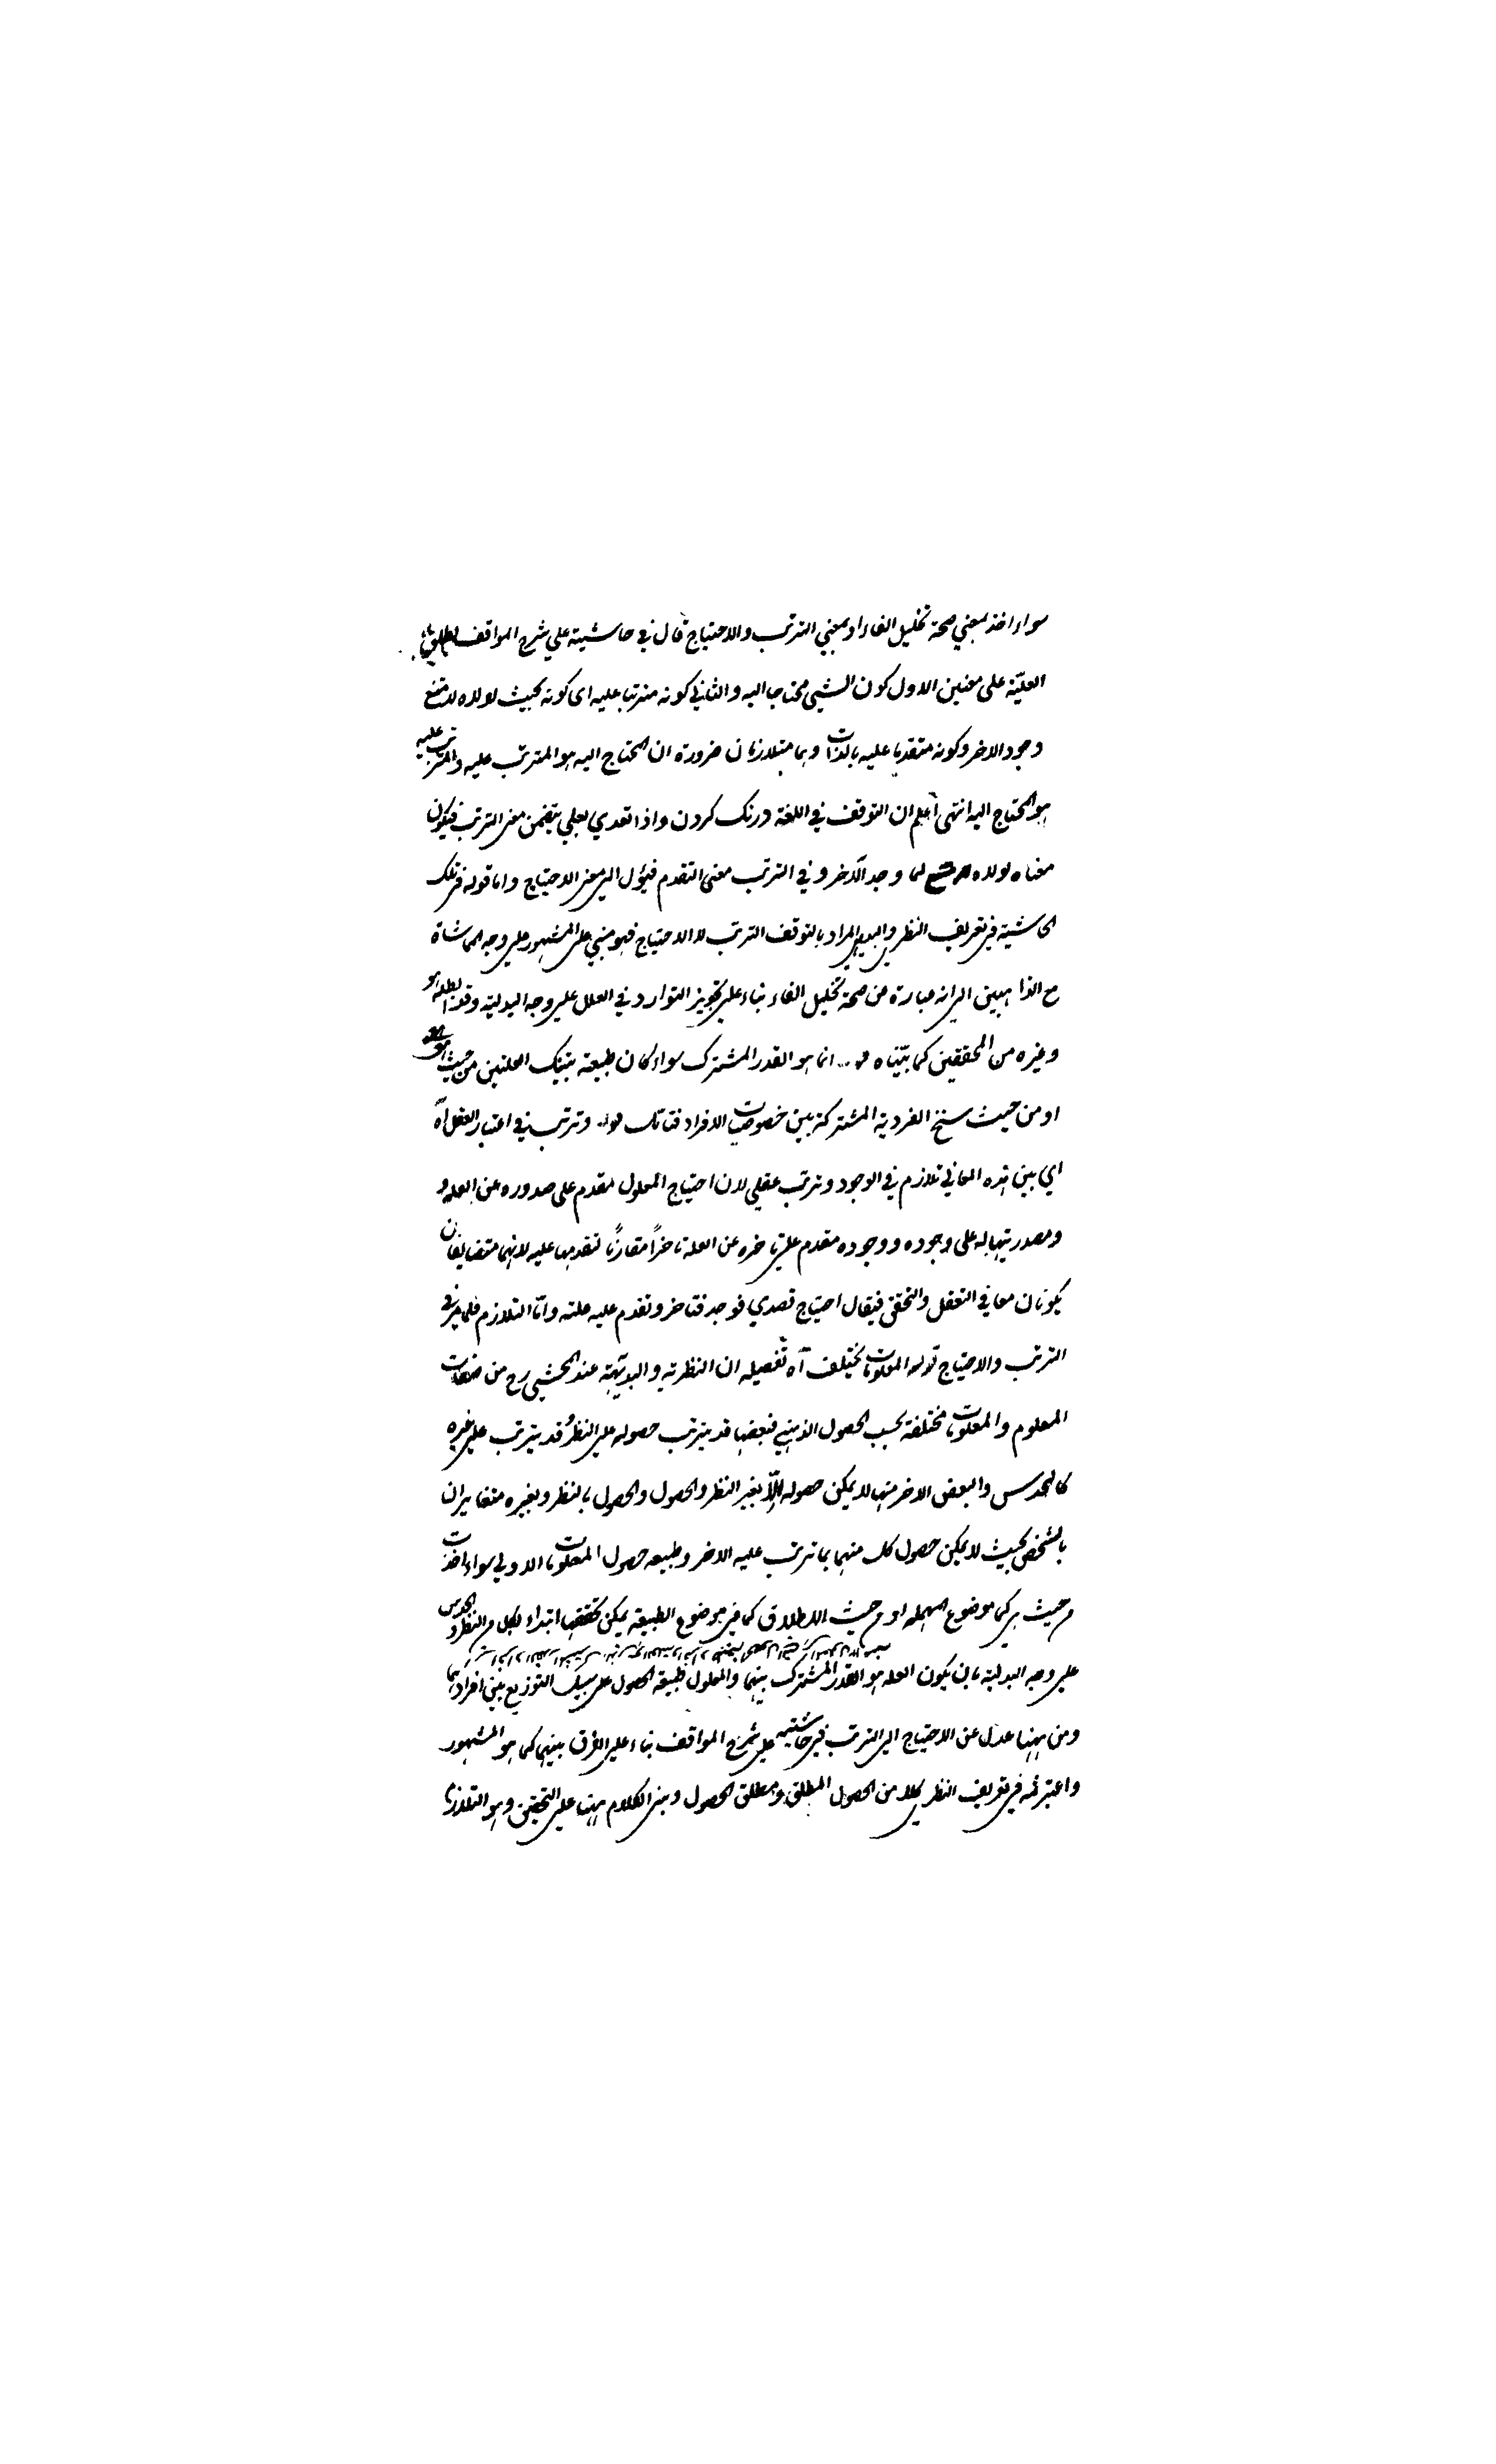 سواء اخذ بمعني صحة تخليل الفاء او بمعني الترتب والاحتياج قال في حاشيته علي شرح المواقف يطلق
العليّة على معنين الاول كون الشيي محتاجا اليه والثاني كونه مترتبا عليه اى كونه بحيث لولاه لامتنع
وجود الاخر وكونه متقدما عليه بالذات وهما متلازمان ضرورة ان المحتاج اليه هو المترتب عليه والمترتب عليه
هو المحتاج اليه انتهى اعلم ان التوقف في اللغة درنك كردن واذا تعدي بعلي يتضمن معنى الترتب فيكون
معناه لولاه لما وجد الآخر وفي الترتب معنى التقدم فيؤل الي معنى الاحتياج واما قوله في تلك
الحاشية في تعريف النظري والبديهي المراد بالتوقف الترتب لا الاحتياج فهو مبني على المشهور علي وجه المماشاة
مع الذاهبين الي انه عبارة من صحة تخليل الفاء بناء علي تجويز التوارد في العلل علي وجه البدلية وقد ابطله هو
وغيره من المحققين كما بيّناه انما هو القدر المشترك سواء كان طبيعة بتينك العلتين من حيث هو
او من حيث سنخ الفردية المشتركة بين خصوصيات الافراد فتامل قوله وترتب في اعتبار العقل آه
اي بين هذه المعاني تلازم في الوجود وترتب عقلي لان احتياج المعلول مقدم على صدوره عن العلة و
ومصدريتها له على وجوده ووجوده مقدم علي تاخره عن العلة تاخرًا مقارنًا لتقدمها عليه لانهما متضايفان
يكونان معا في التعقل والتحقق فيقال احتياج فصدي فوجد فتاخر وتقدم عليه علته وامّا التلازم فلما مر في
الترتب والاحتياج قوله المعلومات يختلف آه تفصيله ان النظرية والبديهّية عند المحشي رح من صفات
المعلوم والمعلومات مختلفة بحسب الحصول الذهني فبعضها قد يترتب حصوله علي النظر وقد يترتب علي غيره
كالحدس والبعض الاخر منها لا يمكن حصوله الّا بغير النظر والحصول والحصول بالنظر وبغيره متغايران
بالشخص بحيث لا يمكن حصول كل منهما بما ترتب عليه الاخر وطبيعة حصول المعلومات الاولي سواء اخذت
من حيث هي كما موضوع المهملة او من حيث الاطلاق كما في موضوع الطبيعة يمكن تحققها ابتداء لكل من النظر والحدس
علي وجه البدلية بان يكون العلة هو القدر المشترك بينهما والمعلول طبيعة الحصول على سبيل التوزيع بين افرادهما
ومن ههنا عدل عن الاحتياج الي الترتب في حاشيته علي شرح المواقف بناء علي الفرق بينهما كما هو المشهور
واعتبر ثمه في تعريف النظري كلا من الحصول المطلق ومطلق الحصول ومبنى الكلام ههنا علي التحقيق وهو التلازم